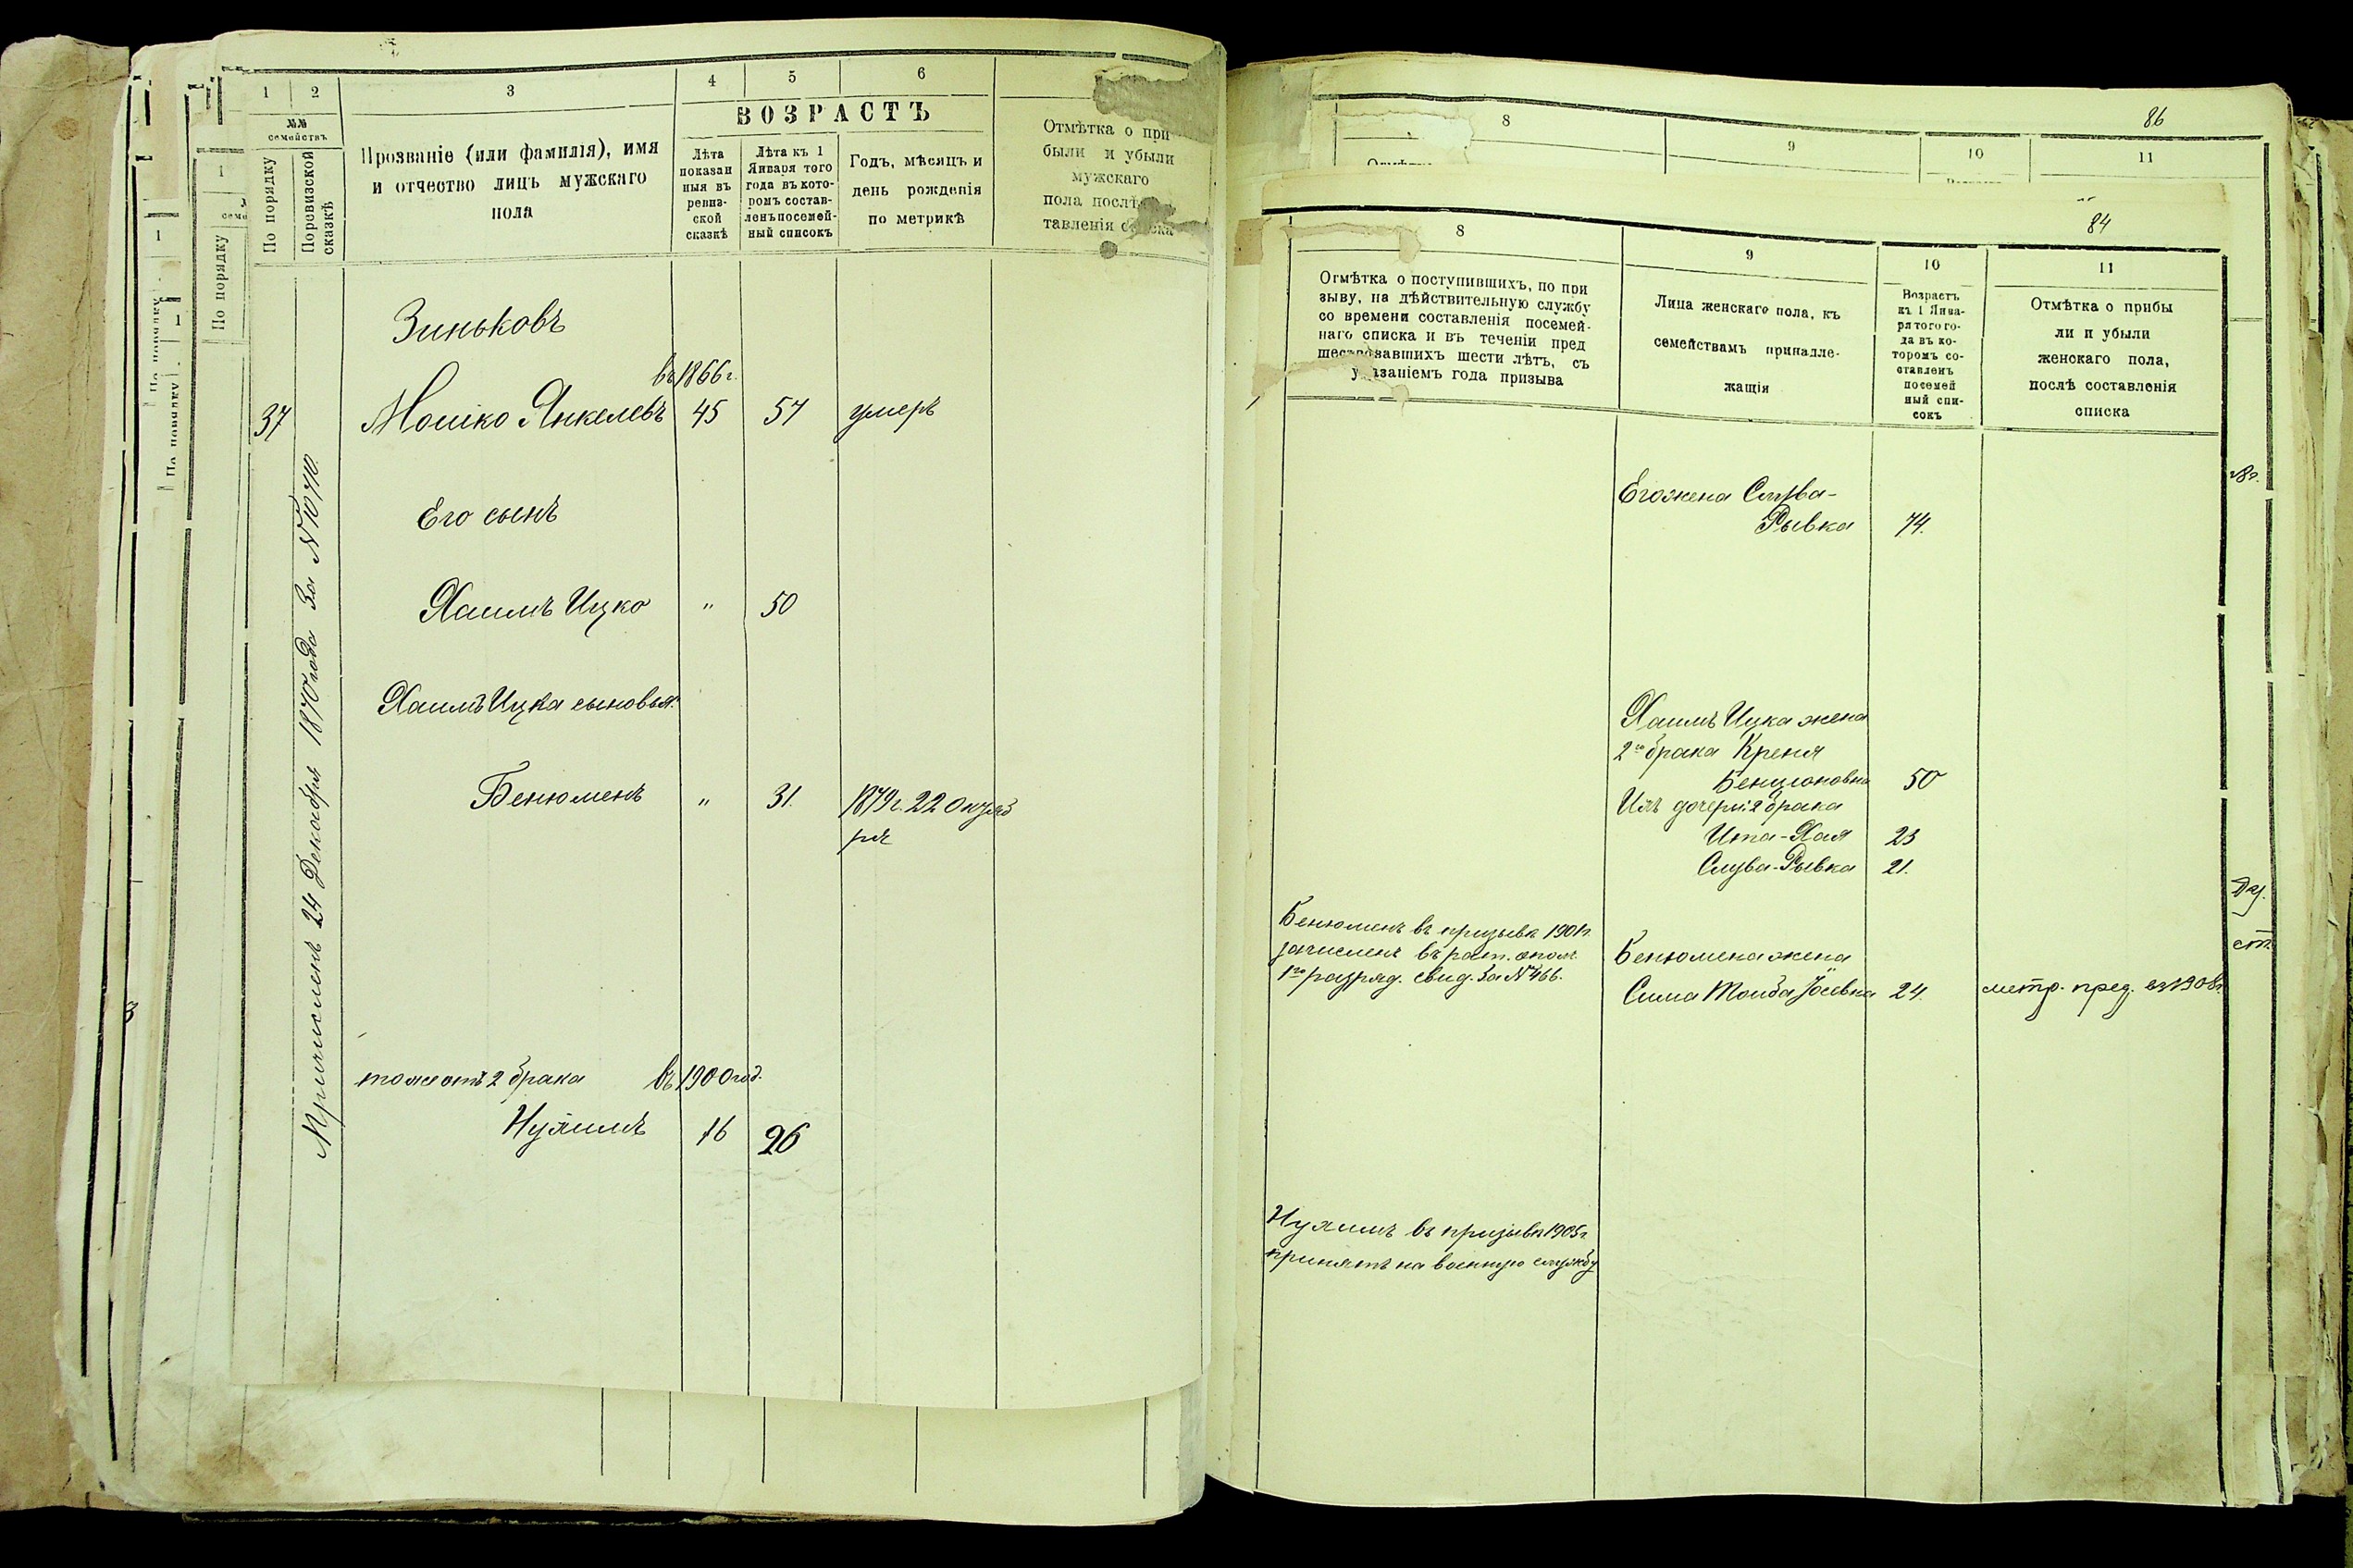 1
2
3
4
5
6
№№
семействъ
По порядку
Поревизской
сказкѣ
Прозваніе (или фамилія), имя
и отчество лицъ мужскаго
пола
ВОЗРАСТЪ
Лѣта
показан
ныя въ
ревиз-
ской
сказкѣ
Лѣта къ 1
Января того
года въ кото-
ромъ состав-
ленъ посемей-
ный списокъ
Годъ, мѣсяцъ и
день рожденія
по метрикѣ
Отмѣтка о при
были и убыли
мужскаго
пола послѣ
тавленія
Зиньковъ
въ 1866 г.
37
Мошко Янкелевъ
45
57
умеръ
Его сынъ
Хаимъ Ицко
"
50
Хаимъ Ицка сыновья:
Бенюменъ
"
31.
1879 г. 22 Октяб
ря
тоже отъ 2 брака
въ 1900 год.
Нухимъ
16
26
Причисленъ 24 Декабря 1870 года За № 10710.
1
По порядку
1
1
86
8
9
10
11
84
8
9
10
11
Отмѣтка о поступившихъ, по при
зыву, на дѣйствительную службу
со времени составленія посемей-
наго списка и въ теченіи пред
шествовавшихъ шести лѣтъ, съ
указаніемъ года призыва
Лица женскаго пола, къ
семействамъ принадле-
жащія
Возрастъ
къ 1 Янва-
ря того го-
да въ ко-
торомъ со-
ставленъ
посемей
ный спи-
сокъ
Отмѣтка о прибы
ли и убыли
женскаго пола,
послѣ составленія
списка
Его жена Слува-
Рывка
74.
Хаимъ Ицка жена
2го брака Креня
Бенционовна
50
Ихъ дочери: 2 брака
Ита-Хая
23
Слува-Рывка
21.
Бенюменъ въ призывѣ 1901 г.
зачисленъ въ рат. ополч.
1го разряд. свид. За № 466.
Бенюмена жена
Сима Тойба Іосевна
24.
метр. пред. въ 1908 г.
Нухимъ въ призывѣ 1905 г.
принятъ на военную службу